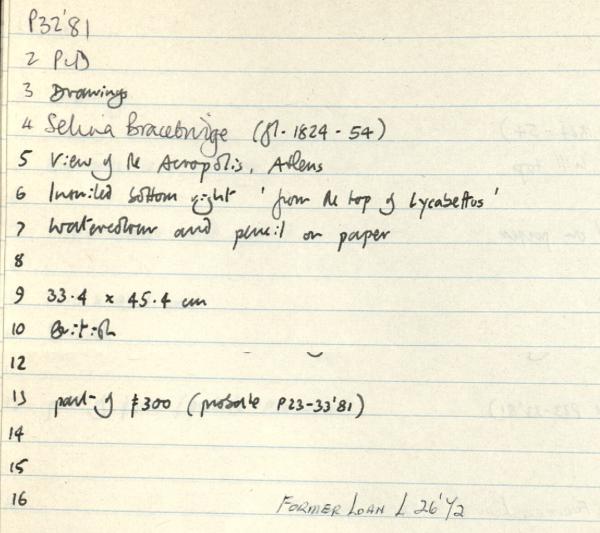 P32'81
2 P&D
3 Drawings
4 Selina Bracebridge (fl. 1824 - 54)
5 View of the Acropolis, Athens
6 Inscribed bottom right 'from the top of Lycabettos'
7 Watercolour and pencil on paper
8
9 33.4 x 45.4 cm
10 British
12
13 part of £300 (probate P23-33'81)
14
15
16 FORMER LOAN L 26'